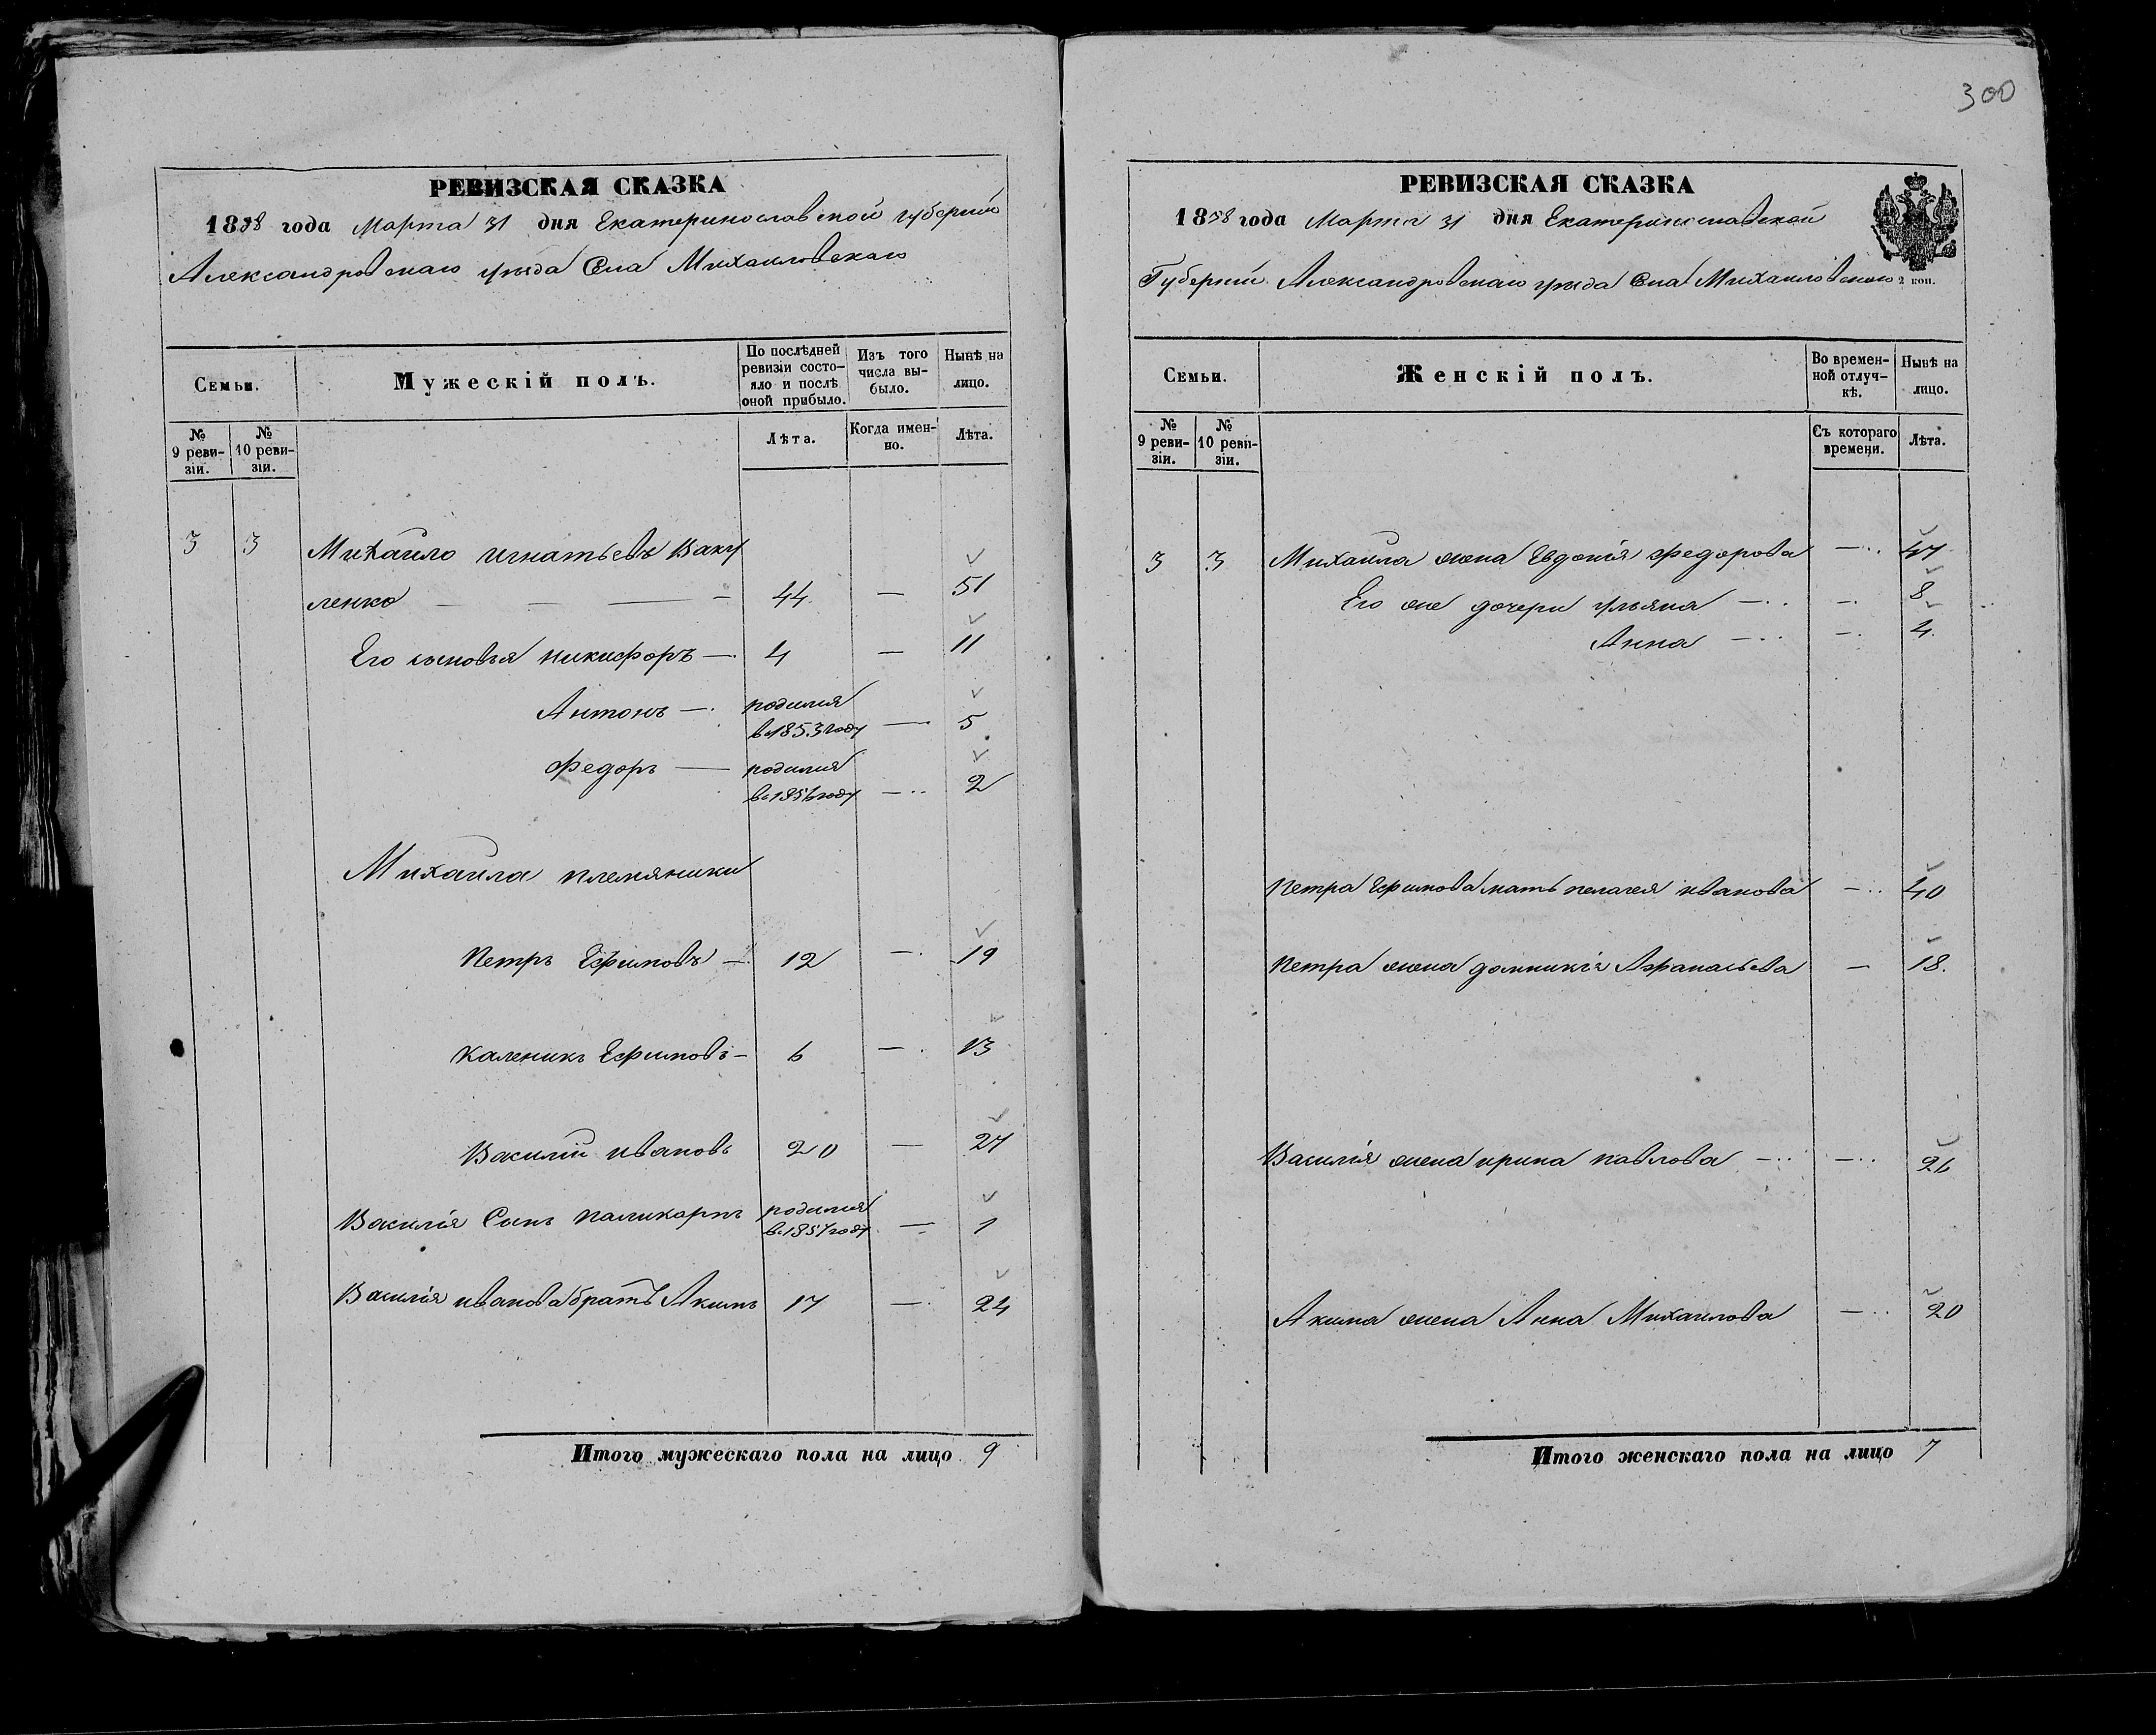 300
РЕВИЗСКАЯ СКАЗКА
1858 года Марта 31 дня Екатеринославской губерніи
Александровскаго уѣзда Села Михаиловскаго
Семьи.
Мужескій полъ.
По послѣдней ревизіи состояло и послѣ оной прибыло.
Изъ того числа выбыло.
Нынѣ на лицо.
№ 9 ревизіи.
№ 10 ревизіи.
Лѣта.
Когда именно.
Лѣта.
3 3 Михаило игнатьевъ Ваку
ленко — — — — 44. — 51
Его сыновья никифоръ — 4 — 11
Антонъ — родился в 1853 году — 5
Федоръ — родился в 1856 году — 2
Михаила племяники
Петръ Ефимовъ — 12 — 19
Каленикъ Ефимовъ — 6 — 13
Василій ивановъ 20 — 27
Василія Сынъ паликарпъ родился в 1857 году — 1
Василія иванова братъ Акимъ 17 — 24
Итого мужескаго пола на лицо 9
РЕВИЗСКАЯ СКАЗКА
1858 года Марта 31 дня Екатеринославской
Губерніи Александровскаго уѣзда Села Михаиловскаго
2 коп.
Семьи.
Женскій полъ.
Во временной отлучкѣ.
Нынѣ на лицо.
№ 9 ревизіи.
№ 10 ревизіи.
Съ котораго времени.
Лѣта.
3 3 Михаила жена Евдокія Федорова — 47
Его же дочери ульяна — — 8
Анна — — 4.
Петра Ефимова мать пелагея иванова — 40
Петра жена домникія Афанасьева — 18.
Василія жена ирина павлова — — 26
Акима жена Анна Михаилова — 20
Итого женскаго пола на лицо 7